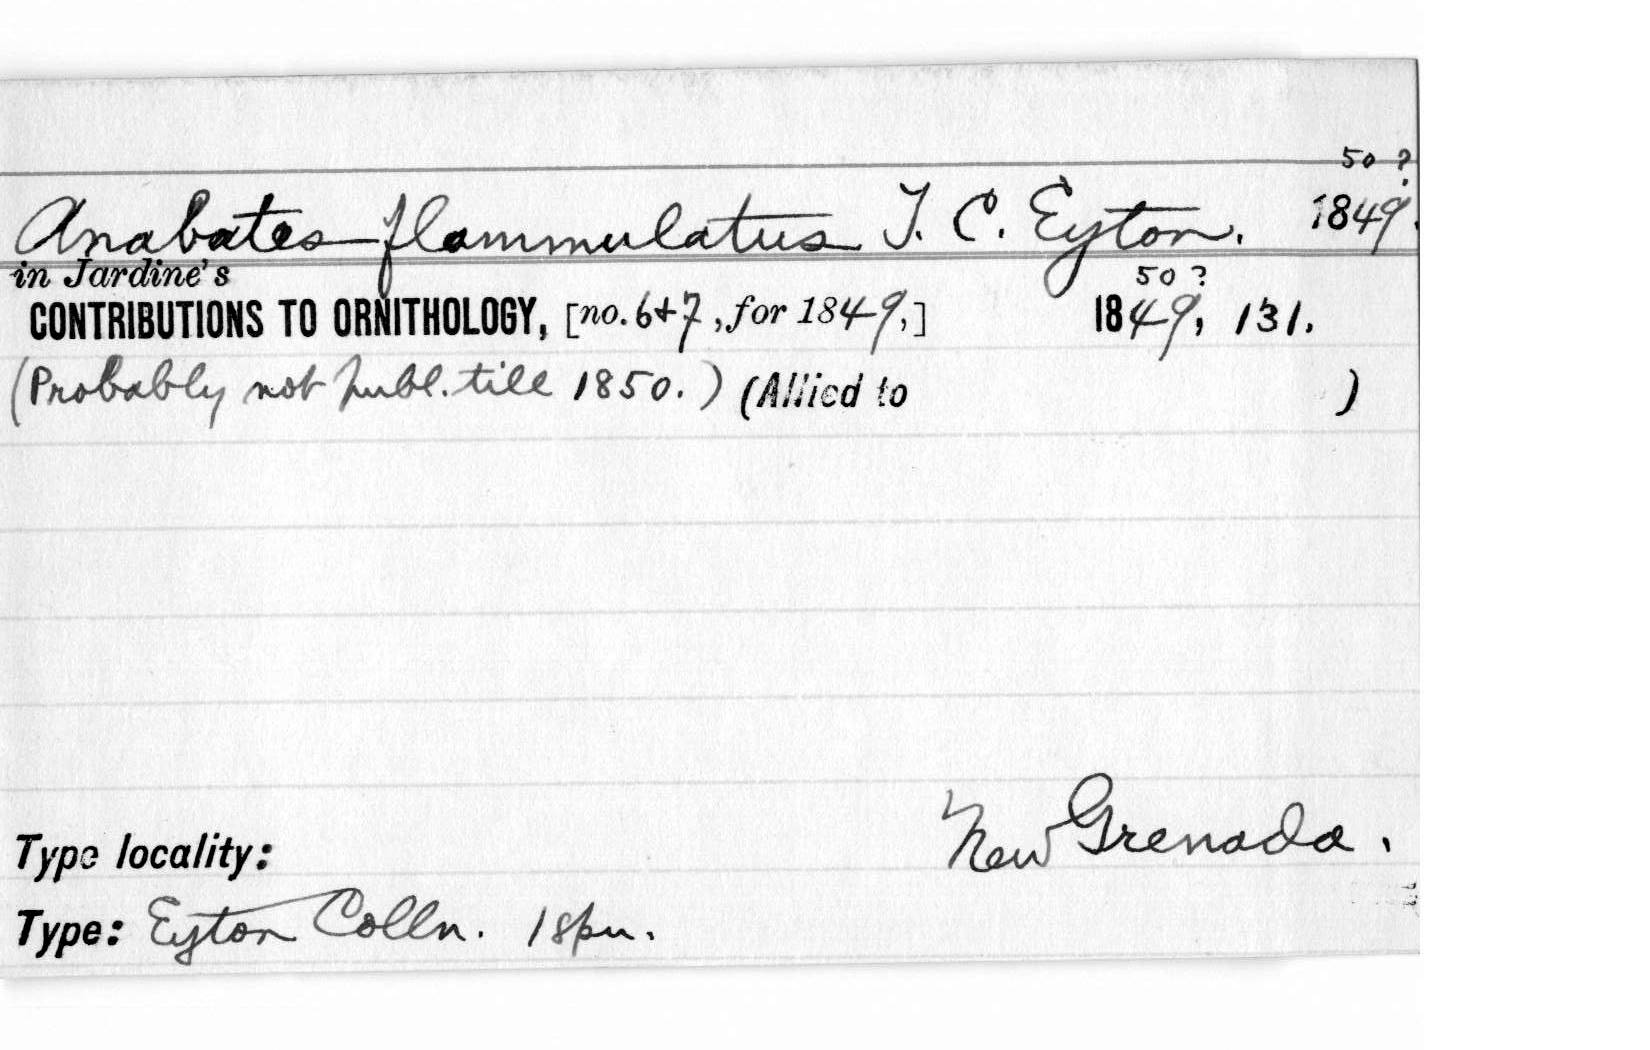 50 ?
Anabates flammulatus T. C. Eyton. 1849.
in Jardine's 50 ?
CONTRIBUTIONS TO ORNITHOLOGY, [no. 6+7, for 1849,] 1849, 131.
(Probably not publ. till 1850.) (Allied to )
Type locality: New Grenada.
Type: Eyton Colln. 1 spn.